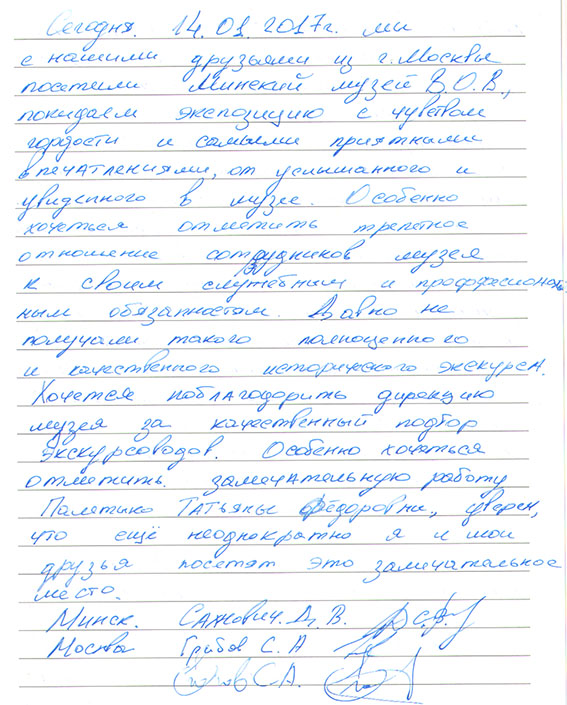 Сегодня. 14.01.2017г. ми
с нашими друзьями из г. Москвы
посетили Минский музей В.О.В.,
покидаем экспозицию с чувством
гордости и самыми приятными
впечатлениями, от услышанного и
увиденного в музее. Особенно
хочеться отметить трепетное
отношение сотрудников музея
к своим служебным и проффесиональ
ным обязанностям. Давно не
получали такого полноценного
и качественного исторического экскурса.
Хочется поблагодорить дирекцию
музея за качественный подбор
экскурсоводов. Особенно хочеться
отметить. замечательную работу
Татьяны Фёдоровны, уверен,
что ещё неоднократно я и мои
друзья посетят это замечательное
место.
Минск. Сахнович Д. В.
Москва Грибов С. А
С.А.